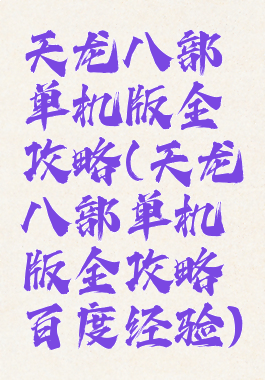 天龙八部
单机版全
攻略(天龙
八部单机
版全攻略
百度经验)